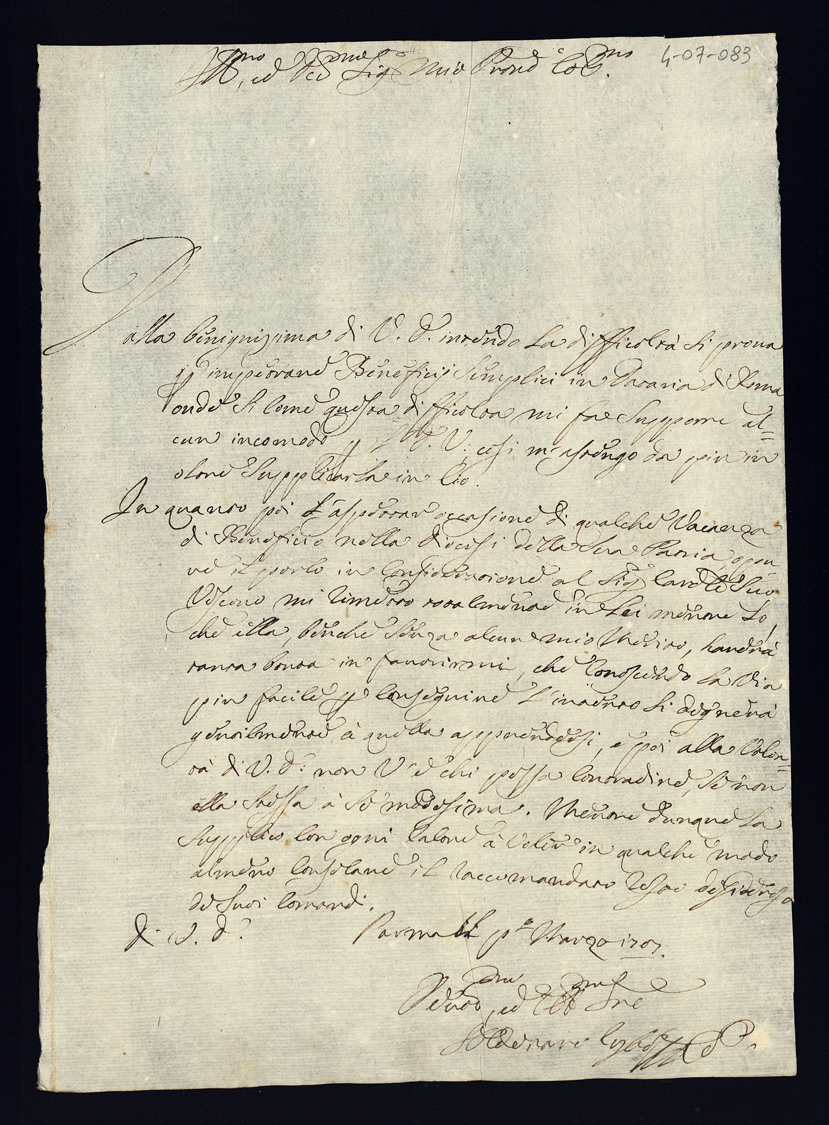 4-07-083
Ill.mo, ed Ecc.mo Sig.e Mio Prone Col.mo
Dalla benignissima di V. E. intendo la difficoltà si prova
p impetrare Beneficij Semplici in Dataria di Roma
onde si come questa difficoltà mi fae supporre al=
cun incomodo p V. E. così m'astengo da piu in
oltre supplicarla in Ciò.
In quanto poi l'aspettar occasione di qualche Vacanza
di Beneficio nella Diocesi della Sua Patria,
ne il porlo in Consideratione al Sig.e Suo
Vescovo mi rimetto totalmente in Lei mentre So,
che ella, benche senza alcun mio Merito, haverà
tanta bontà in favorirmi, che Conoscendo la Via
piu facile p Conseguire l'intento si degnerà
gentilmente à quella apprendersi, e poi alla Volon=
tà di V. E. non V'è chi possa Contradire, se non
ella stessa à se medesima. Mentre dunque La
Supplico Con ogni Calore à Voler in qualche modo
almeno Consolare il raccomandato resto desideroso
de Suoi Comandi.
di V. E. Parma p.o Marzo 1707.
Devot.mo, ed Obb.mo Sre